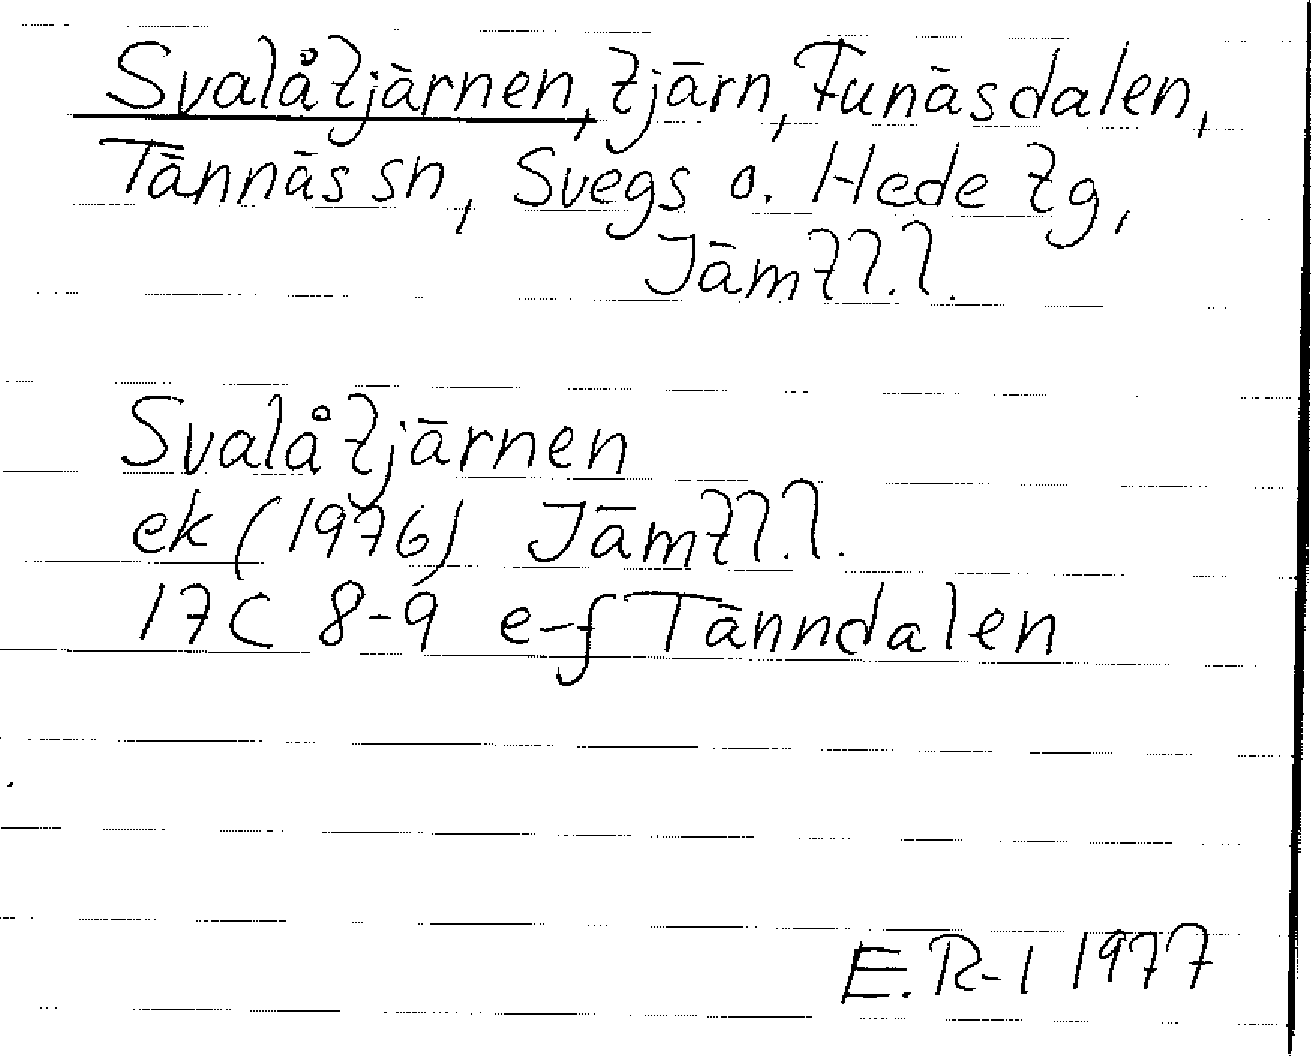 Svalåtjärnen, tjärn, Funäsdalen,
Tännäs sn, Svegs o. Hede tg,
Jämtl. l.
Svalåtjärnen
ek (1976) Jämtl. l.
17C 8-9 e-f Tänndalen
E. R-l 1977